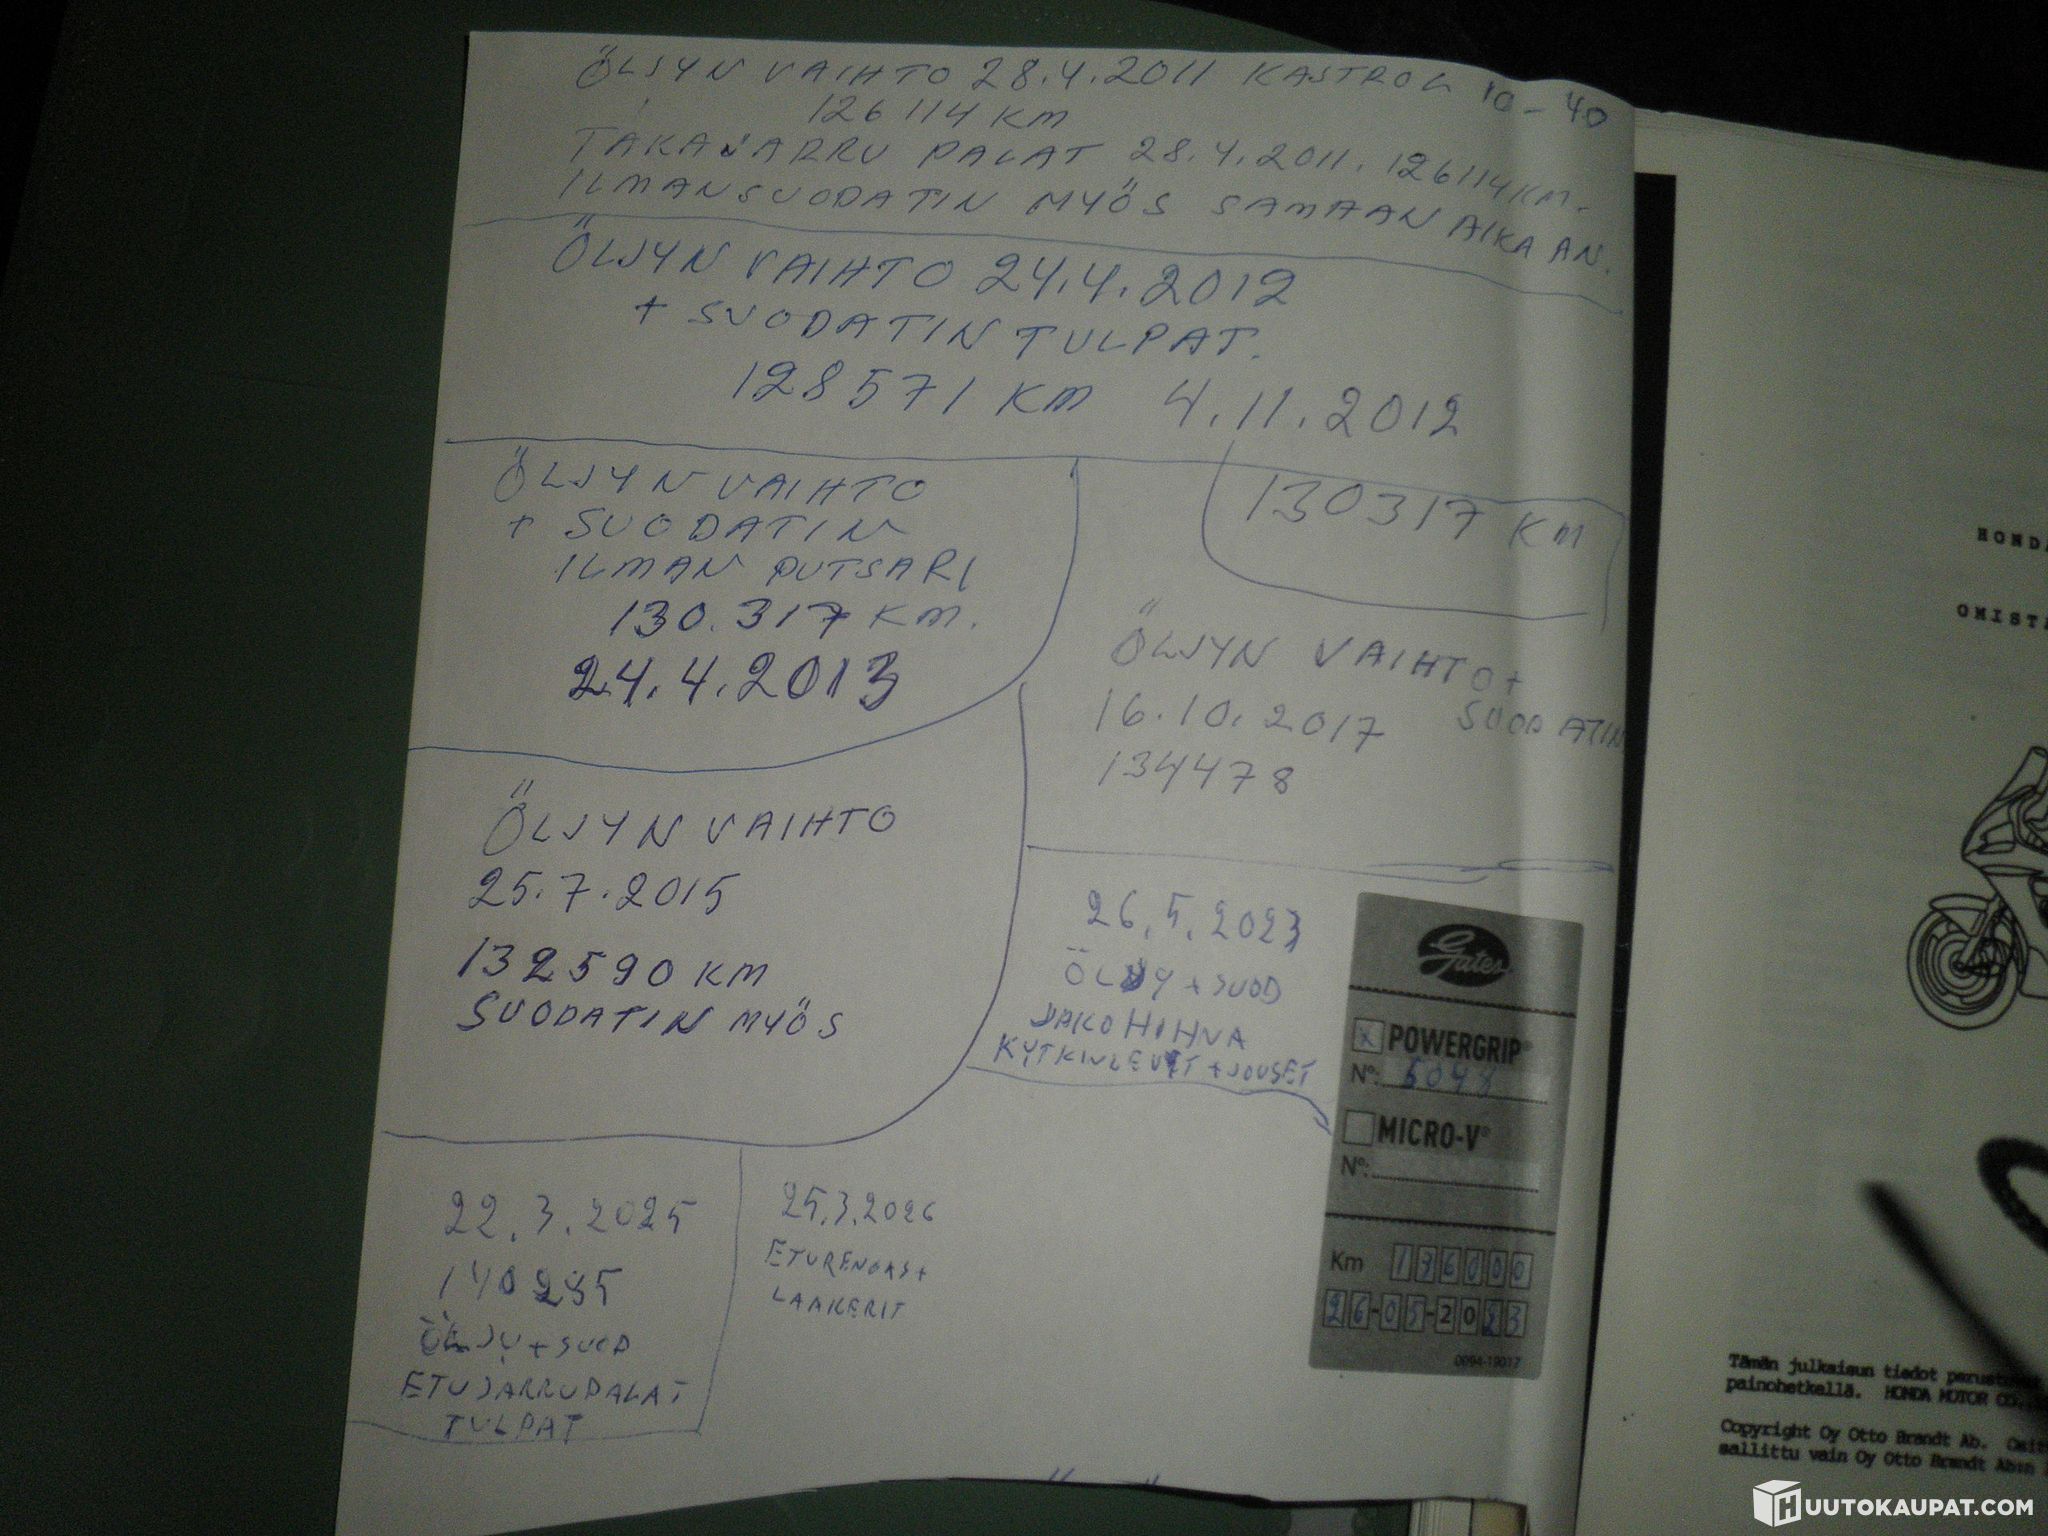 ÖLJYN VAIHTO 28.4.2011 KASTROL 10-40
126114 KM
TAKAJARRU PALAT 28.4.2011. 126114 KM.
ILMANSUODATIN MYÖS SAMAAN AIKAAN.
ÖLJYN VAIHTO 24.4.2012
+ SUODATIN TULPAT.
128571 KM 4.11.2012
130317 KM
ÖLJYN VAIHTO
+ SUODATIN
ILMAN PUTSARI
130.317 KM.
24.4.2013
ÖLJYN VAIHTO +
16.10.2017 SUODATIN
134478
ÖLJYN VAIHTO
25.7.2015
132590 KM
SUODATIN MYÖS
26.5.2023
ÖLJY + SUOD
JAKOHIHNA
KYTKINLEVYT + JOUSET
Gates
x POWERGRIP®
Nº: 5048
MICRO-V®
Nº:
Km 136000
26-05-2023
0094-19017
22.3.2025
140235
ÖLJY + SUOD
ETUJARRUPALAT
TULPAT
25.3.2026
ETURENGAS +
LAAKERIT
HONDA
OMISTA
Tämän julkaisun tiedot perustu
painohetkellä. HONDA MOTOR CO.,
Copyright Oy Otto Brandt Ab. Osit
sallittu vain Oy Otto Brandt Ab:n
HUUTOKAUPAT.COM